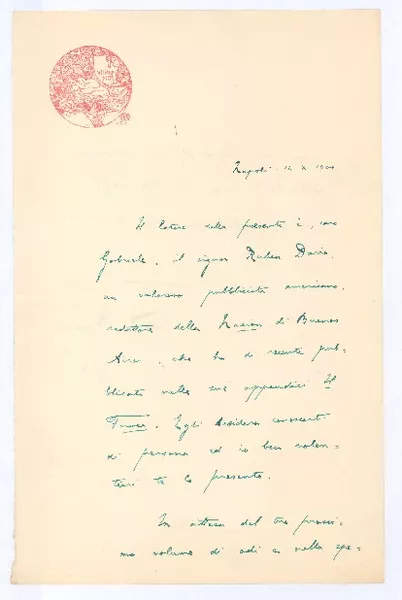 Napoli 12 X 1900
Il latore della presente è, caro
Gabriele, il signor Ruben Dario,
un valoroso pubblicista americano,
redattore della Nacion di Buenos
Aires, che ha di recente pub-
blicato nelle sue appendici Il
Fuoco. Egli desidera conoscerti
di persona ed io ben volen-
tieri te lo presento.
In attesa del tuo prossi-
mo volume di odi e nella spe-